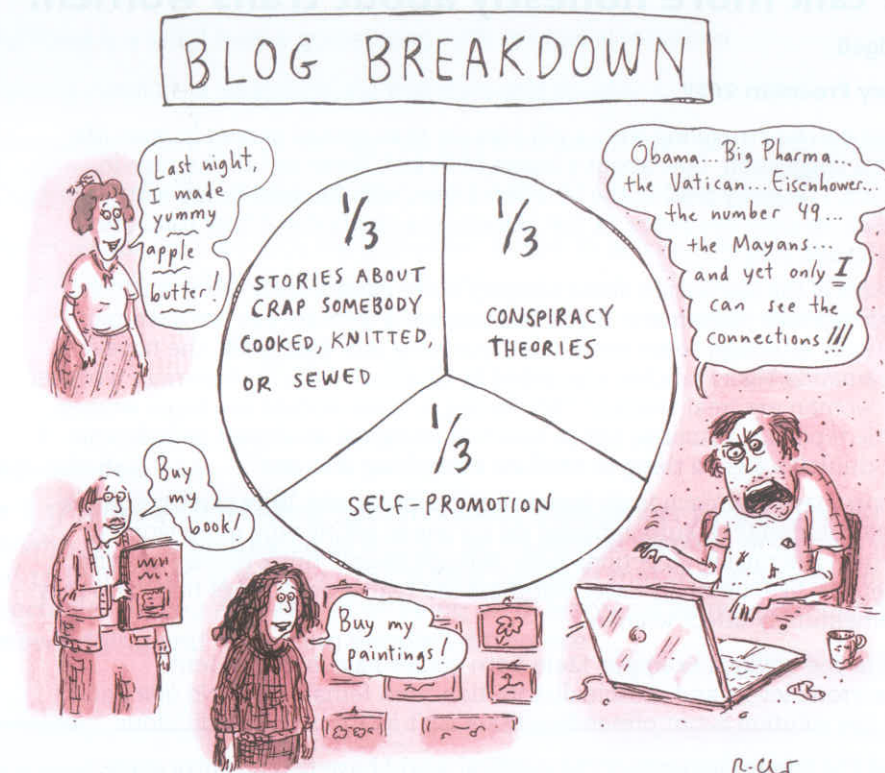 BLOG BREAKDOWN
Last night,
I made
yummy
apple
butter!
1/3
STORIES ABOUT
CRAP SOMEBODY
COOKED, KNITTED,
OR SEWED
1/3
CONSPIRACY
THEORIES
Obama... Big Pharma...
the Vatican... Eisenhower...
the number 49...
the Mayans...
and yet only I
can see the
connections!!!
1/3
SELF-PROMOTION
Buy
my
book!
Buy my
paintings!
R. Chast